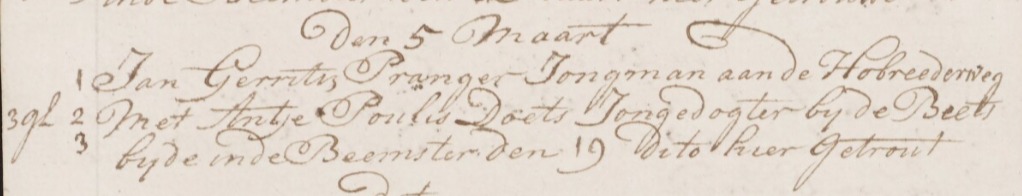 Den 5 Maart
1 Jan Gerritsz Pranger Jongman aan de Hobreederweg
3gl 2 Met Antje Poulis Doets Jongedogter by de Beets
3 byde inde Beemster den 19 dito hier Getrout